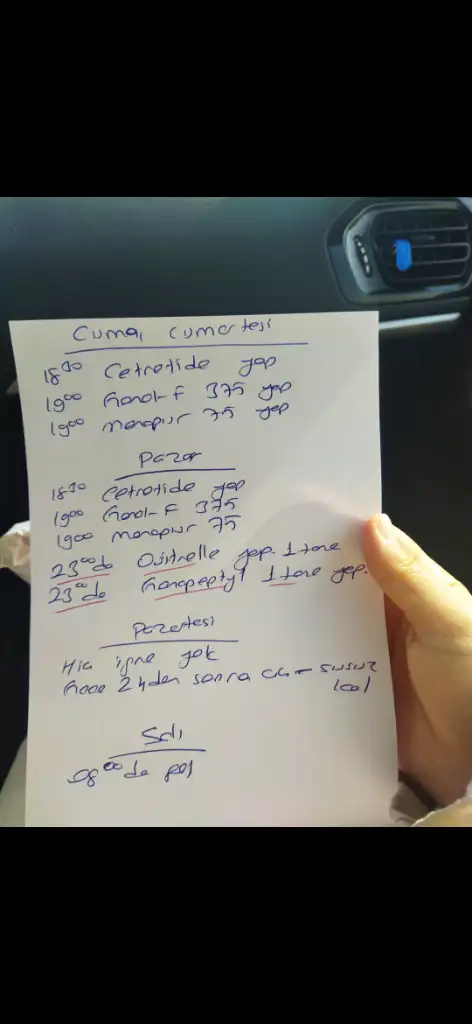 Cuma, cumartesi
18³⁰ Cetrotide yap
19⁰⁰ Gonal-F 375 yap
19⁰⁰ Menopur 75 yap
Pazar
18³⁰ Cetrotide yap
19⁰⁰ Gonal-F 375
19⁰⁰ Menopur 75
23⁰⁰ de Ovitrelle yap. 1 tane
23⁰⁰ de Gonapeptyl 1 tane yap.
Pazartesi
Hiç iğne yok
Gece 24den sonra aç - susuz
kal
Salı
08⁰⁰ de gel